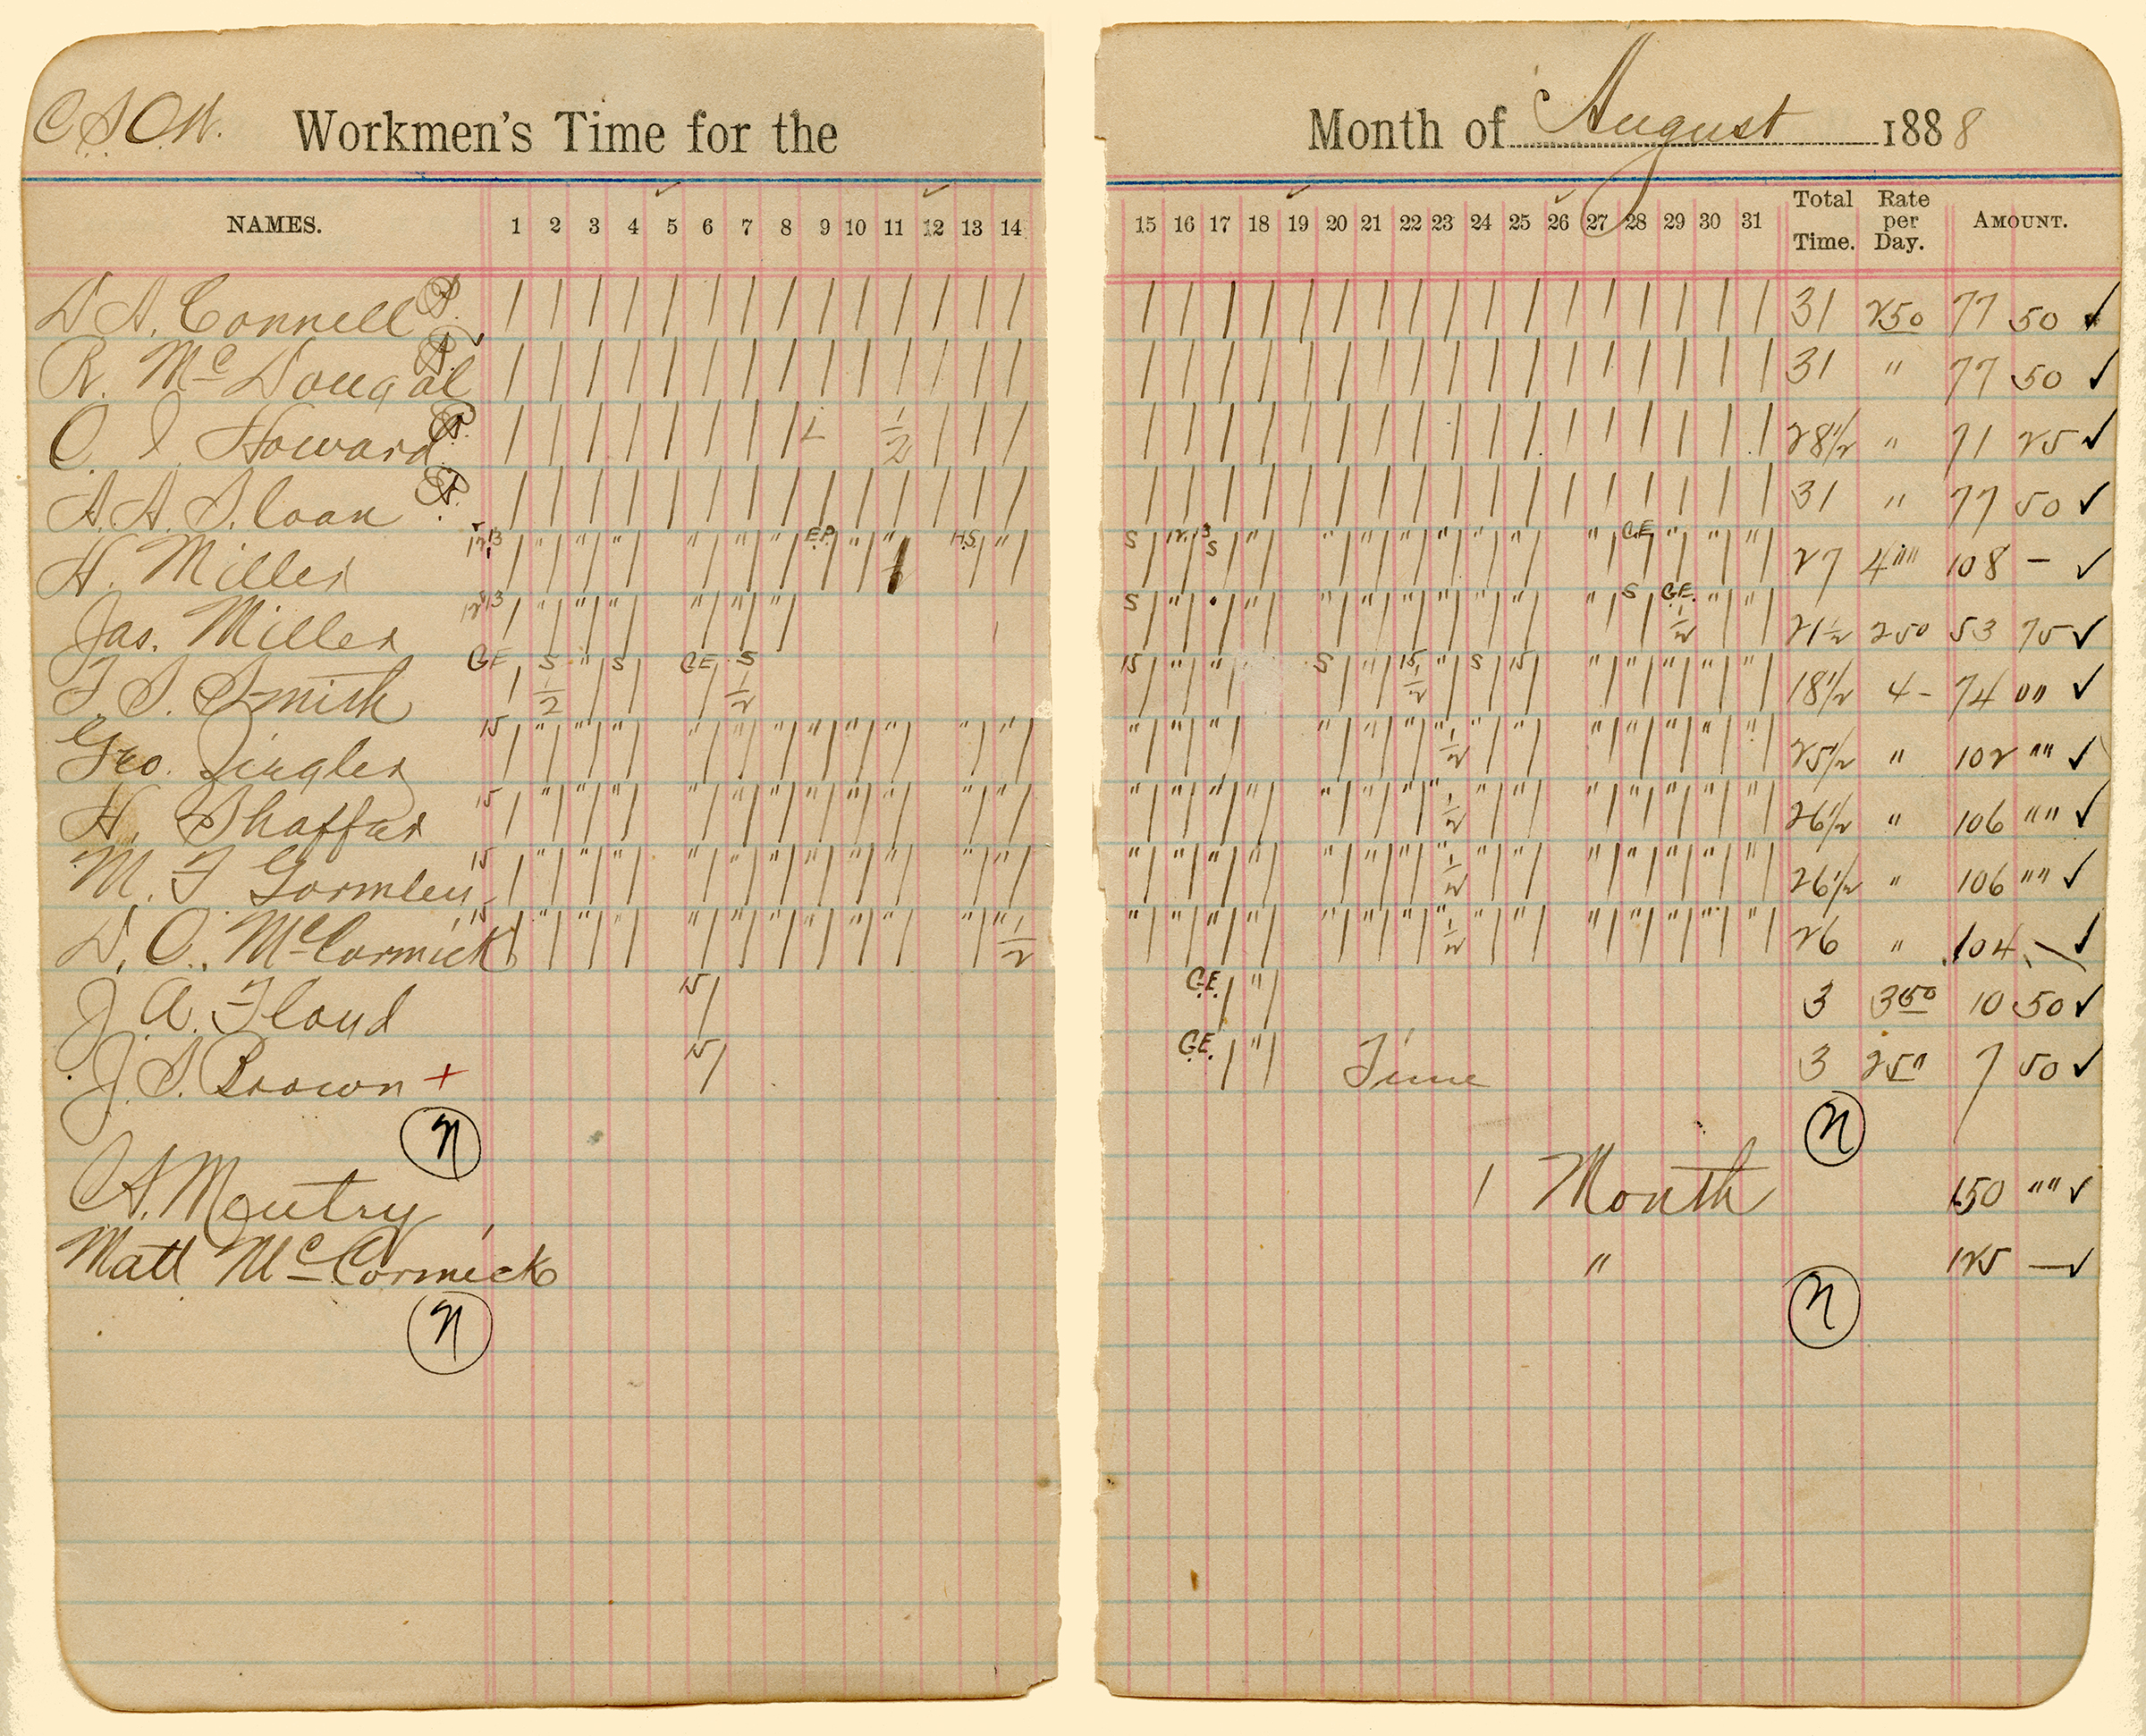 C.S.O.W. Workmen's Time for the Month of August 1888
NAMES. 1 2 3 4 5 6 7 8 9 10 11 12 13 14 15 16 17 18 19 20 21 22 23 24 25 26 27 28 29 30 31 Total Time. Rate per Day. AMOUNT.
D A. Connell / / / / / / / / / / / / / / / / / / / / / / / / / / / / / / / 31 250 77 50 ✓
R. McDougal / / / / / / / / / / / / / / / / / / / / / / / / / / / / / / / 31 " 77 50 ✓
C. I. Howard / / / / / / / / 1/2 / / / / / / / / / / / / / / / / / / / / 28 1/2 " 71 25 ✓
A. A. Sloan / / / / / / / / / / / / / / / / / / / / / / / / / / / / / / / 31 " 77 50 ✓
H. Miller E.P. H.S. S S G.E. 27 4"" 108 – ✓
Jas. Miller S S G.E. 1/2 21 1/2 250 53 75 ✓
F. S. Smith G.E. S 1/2 " S G.E. S 1/2 15 " " S " 15 1/2 " S 15 " " " " " 18 1/2 4 – 74 00 ✓
Geo. Zingler 15 1/2 25 1/2 " 102 "" ✓
H. Shaffer 15 1/2 26 1/2 " 106 "" ✓
M. F Gormley 15 1/2 26 1/2 " 106 "" ✓
D. C. McCormick 15 1/2 1/2 26 " 104 – ✓
J. A. Floyd 15 / G.E. / " / 3 350 10 50 ✓
J. S. Brown + 15 / G.E. / " / Time 3 250 7 50 ✓
n n
A. Moutry 1 Month 150 "" ✓
Matt McCormick " 125 — ✓
n n